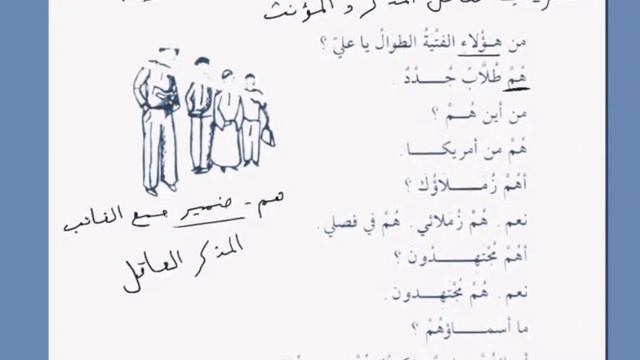 المذكر والمؤنث
من هؤُلاء الفتيةُ الطوَالُ يا عليّ ؟
هُمْ طُلَّابٌ جُــدُدٌ .
من أين هُــمْ ؟
هُمْ من أمريكــا .
أهُمْ زُمَـلاؤُك ؟
نعم . هُمْ زُمَلائي . هُمْ في فصلي .
أهُمْ مُجْتهــدُونَ ؟
نعم . هُمْ مُجْتهــدون .
ما أسمـاؤهُمْ ؟
هم - ضمير جمع الغائب
المذكر العاقل